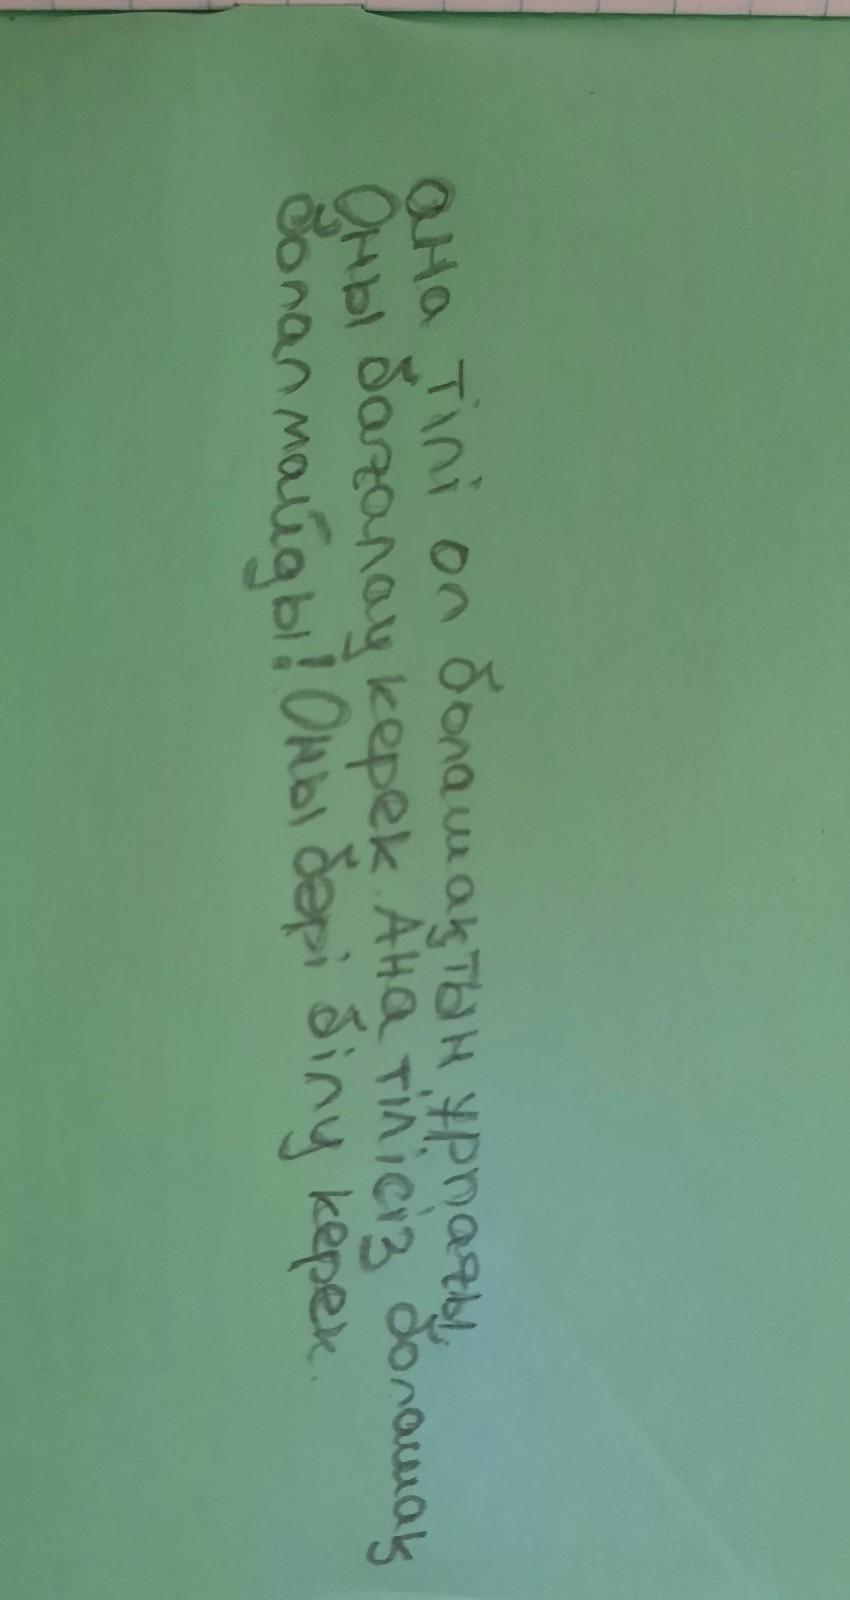 ана тілі ол болашақтын ұрпағы.
Оны бағалау керек. Ана тілісіз болашақ
болалмайды! Оны бәрі білу керек.